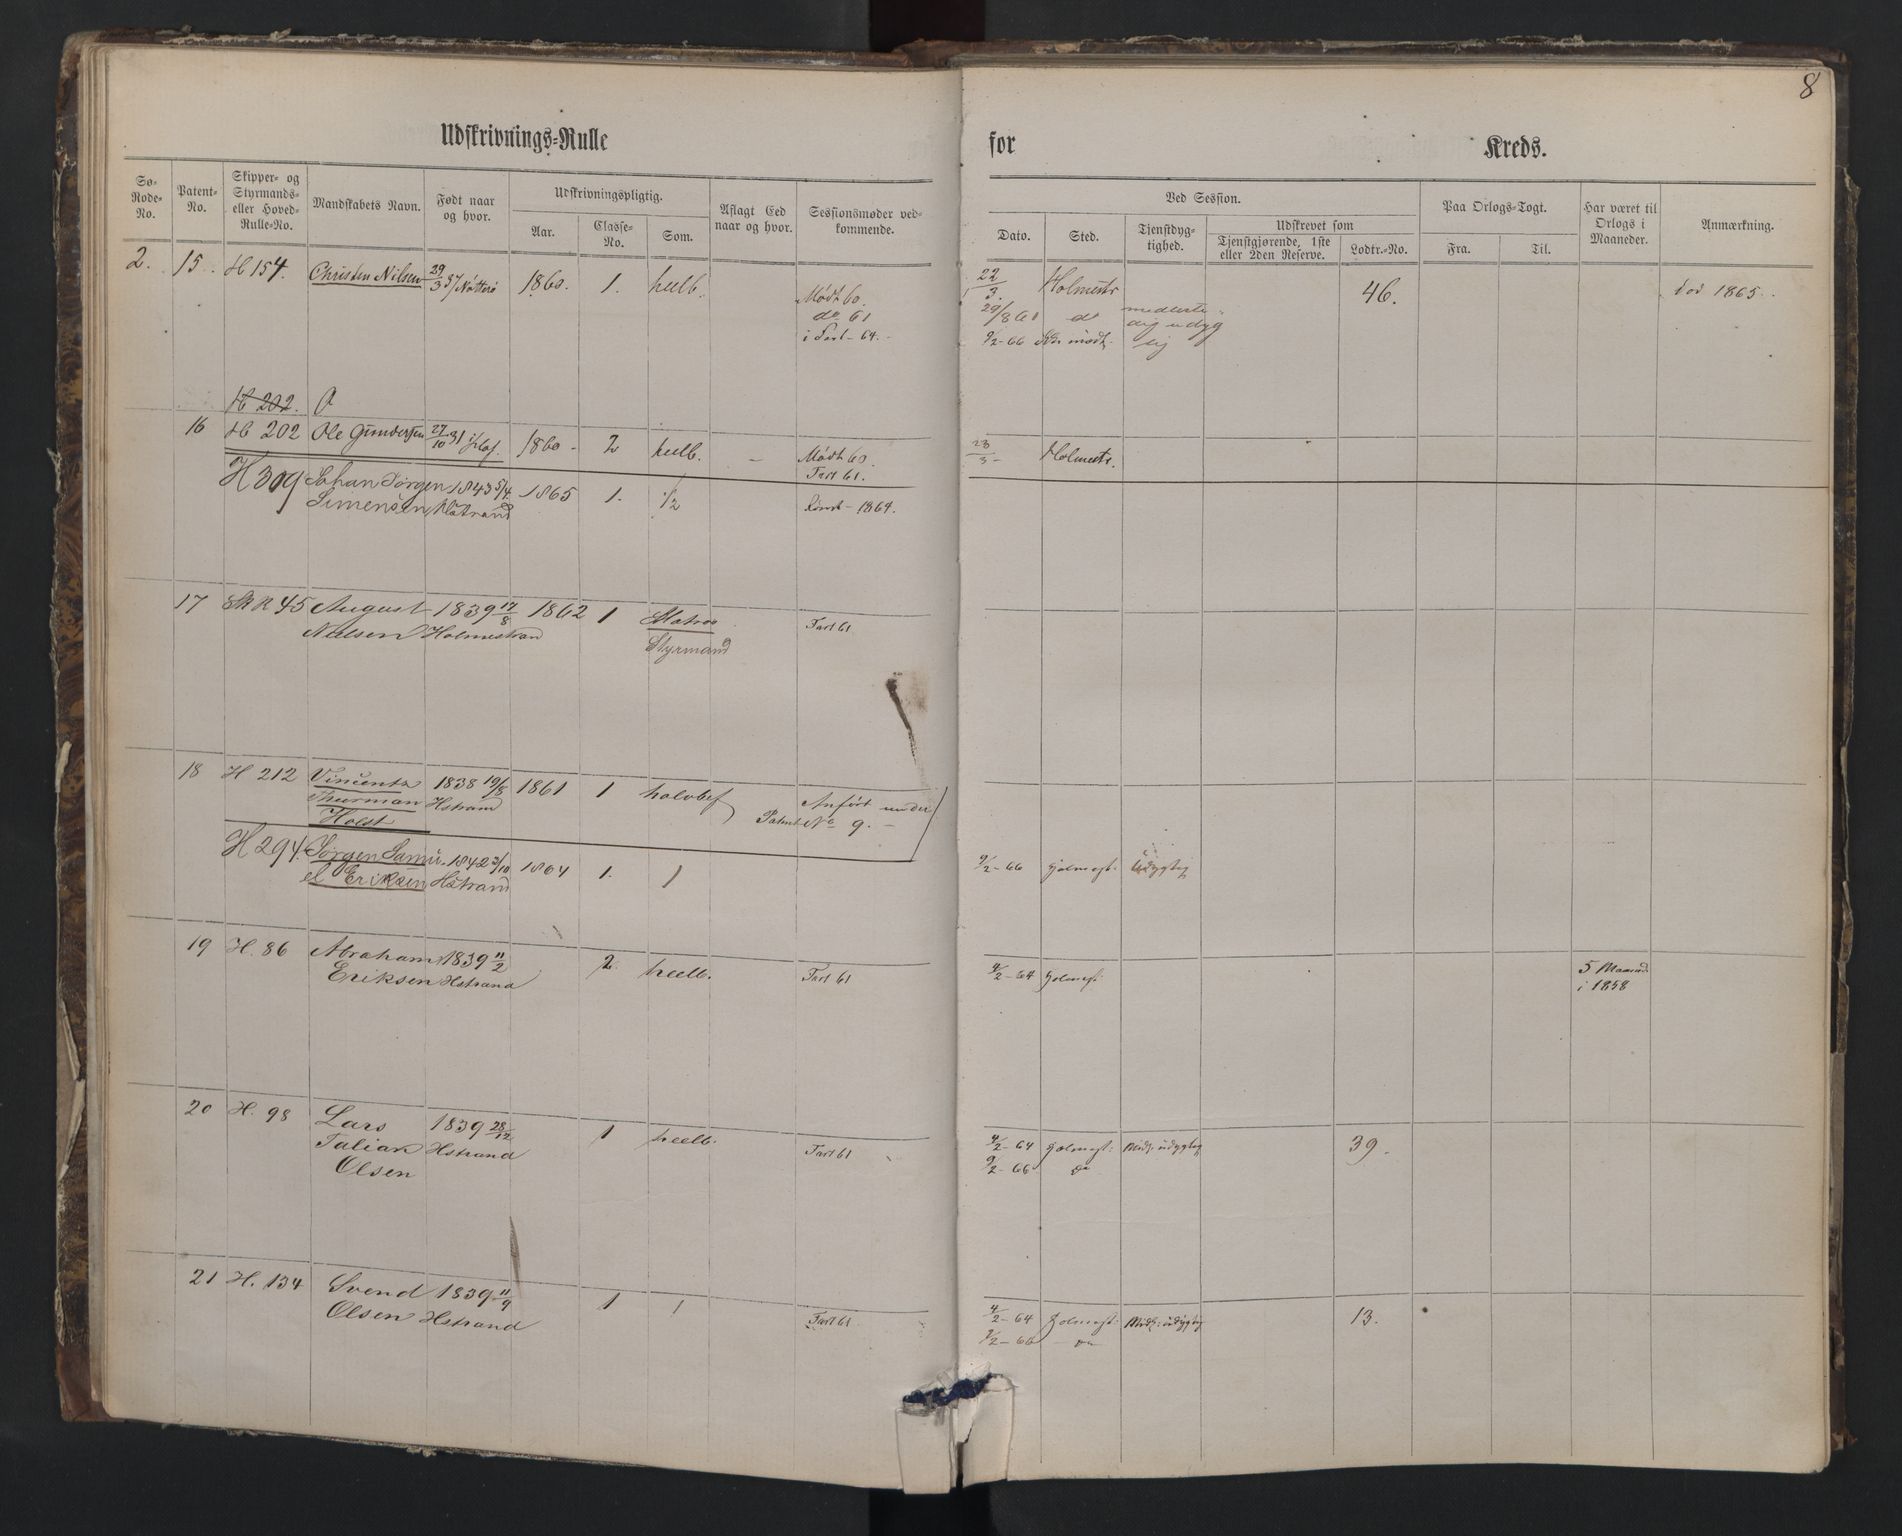 8
Udskrivnings-Rulle for Kreds.
Sø-Rode-No.
Patent-No.
Skipper- og Styrmands- eller Hoved-Rulle-No.
Mandskabets Navn.
Født naar og hvor.
Udskrivningspligtig.
Aar.
Classe-No.
Som.
Aflagt Eed naar og hvor.
Sessionsmøder vedkommende.
Ved Session.
Dato.
Sted.
Tjenstdygtighed.
Udskrevet som
Tjenstgjørende, 1ste eller 2den Reserve.
Lodtr.-No.
Paa Orlogs-Togt.
Fra.
Til.
Har været til Orlogs i Maaneder.
Anmærkning.
2. 15. H 154. Christen Nilsen 29/3 37 Nötterö 1860. 1. heelb. 22/3. Holmestr 46. död 1865.
Mödt 60.
do 61 29/8 61 do
i Fart 64. 9/2-66 mödt
H 202.
16 H 202 Ole Gundersen 27/10 31 1860 2 heelb. Mödt 60. 23/3 Holmestr.
Fart 61.
H 309 Johan Jörgen 1843 5/4 1865 1. 1/2
Simensen Hstrand 1864.
17 45 August 1839 17/8 1862 1 Matros Fart 61
Nielsen Holmestrand Styrmand
18 H 212 Vincents 1838 19/8 1861 1 halvbef Anfört under
Thurman Hstrand Patent No 9.
Holst
H 294. Jörgen Samu- 1842 3/10 1864 1. 1 9/2-66 Holmest: Udygtig
el Eriksen Hstrand
19 H. 86 Abraham 1839 11/2 2 heelb. Fart 61 4/2-64 Holmest: 5 Maaned.
Eriksen Hstrand i 1858
20 H. 98 Lars 1839 28/12 1 heelb. Fart 61 4/2-64 Holmest: Midl: udygtig 39.
Talian Hstrand 9/2-66 Do
Olsen
21 H. 134 Svend 1839 11/9 1 1 Fart 61 4/2-64 Holmest: Midl: udygtig 13.
Olsen Hstrand 9/2-66 Do